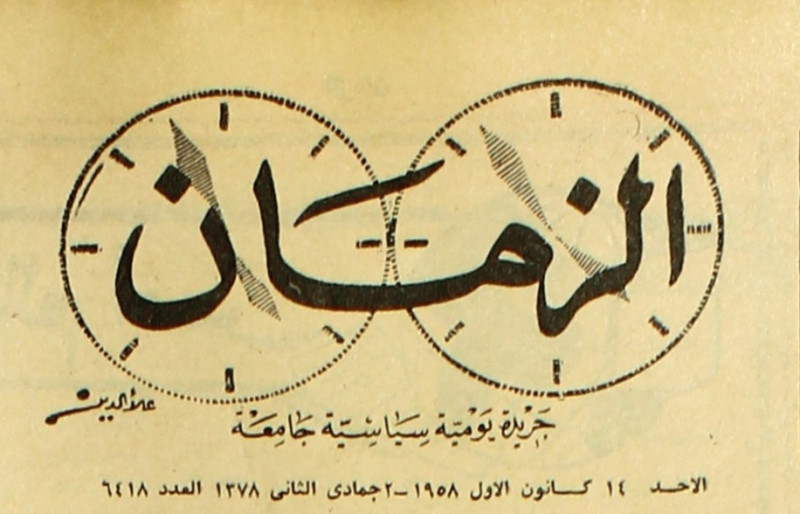 الزمان
علاء الدين
جَرِيْدَة يَوْمِيَّة سِيَاسِيَّة جَامِعَة
الاحـد ١٤ كـانون الاول ١٩٥٨ ـ ٢ جمادى الثانى ١٣٧٨ العدد ٦٤١٨